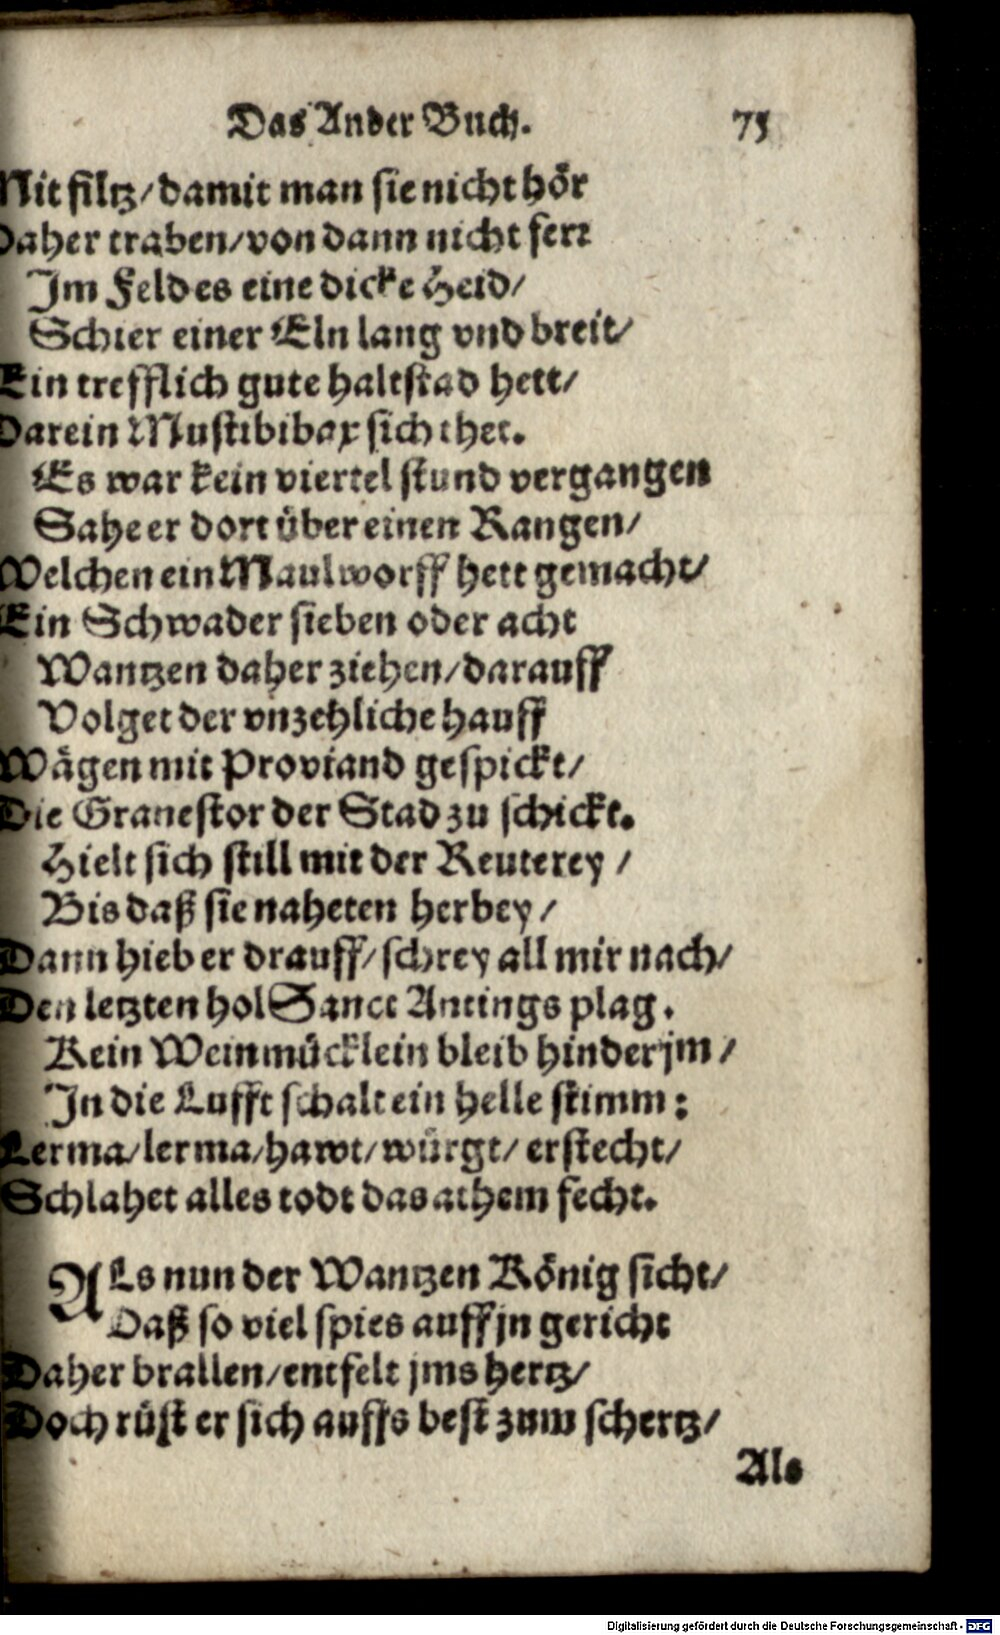 Das Ander Buch. 75
Mit filtz/damit man sie nicht hör
Daher traben/von dann nicht ferr
Im Feld es eine dicke Heid/
Schier einer Eln lang vnd breit/
Ein trefflich gute haltstad hett/
Darein Mustibibax sich thet.
Es war kein viertel stund vergangen
Sahe er dort über einen Rangen/
Welchen ein Maulworff hett gemacht/
Ein Schwader sieben oder acht
Wantzen daher ziehen/darauff
Volget der vnzehliche hauff
Wägen mit Proviand gespickt/
Die Granestor der Stad zu schickt.
Hielt sich still mit der Reuterey/
Bis daß sie naheten herbey/
Dann hieb er drauff/schrey all mir nach/
Den letzten hol Sanct Antings plag.
Kein Weinmücklein bleib hinder jm/
In die Lufft schalt ein helle stimm:
Lerma/lerma/hawt/würgt/erstecht/
Schlahet alles todt das athem fecht.
ALs nun der Wantzen König sicht/
Daß so viel spies auff jn gericht
Daher brallen/entfelt jms hertz/
Doch rüst er sich auffs best zum schertz/
Als
Digitalisierung gefördert durch die Deutsche Forschungsgemeinschaft - DFG